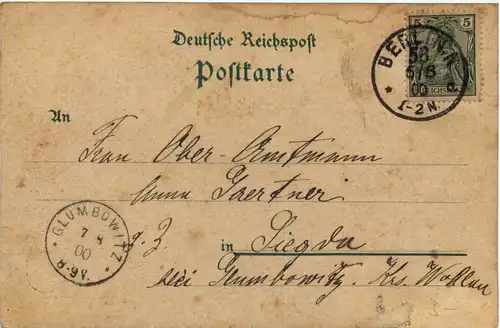 Deutsche Reichspost
Postkarte
5 5
BERLIN, N.
58
6/8
00
1-2 N.
An
Frau Ober-Amtmann
Anna Gaertner
z. Z.
in Siegda
bei Glumbowitz. Krs. Wohlau
GLUMBOWITZ
7 8
00